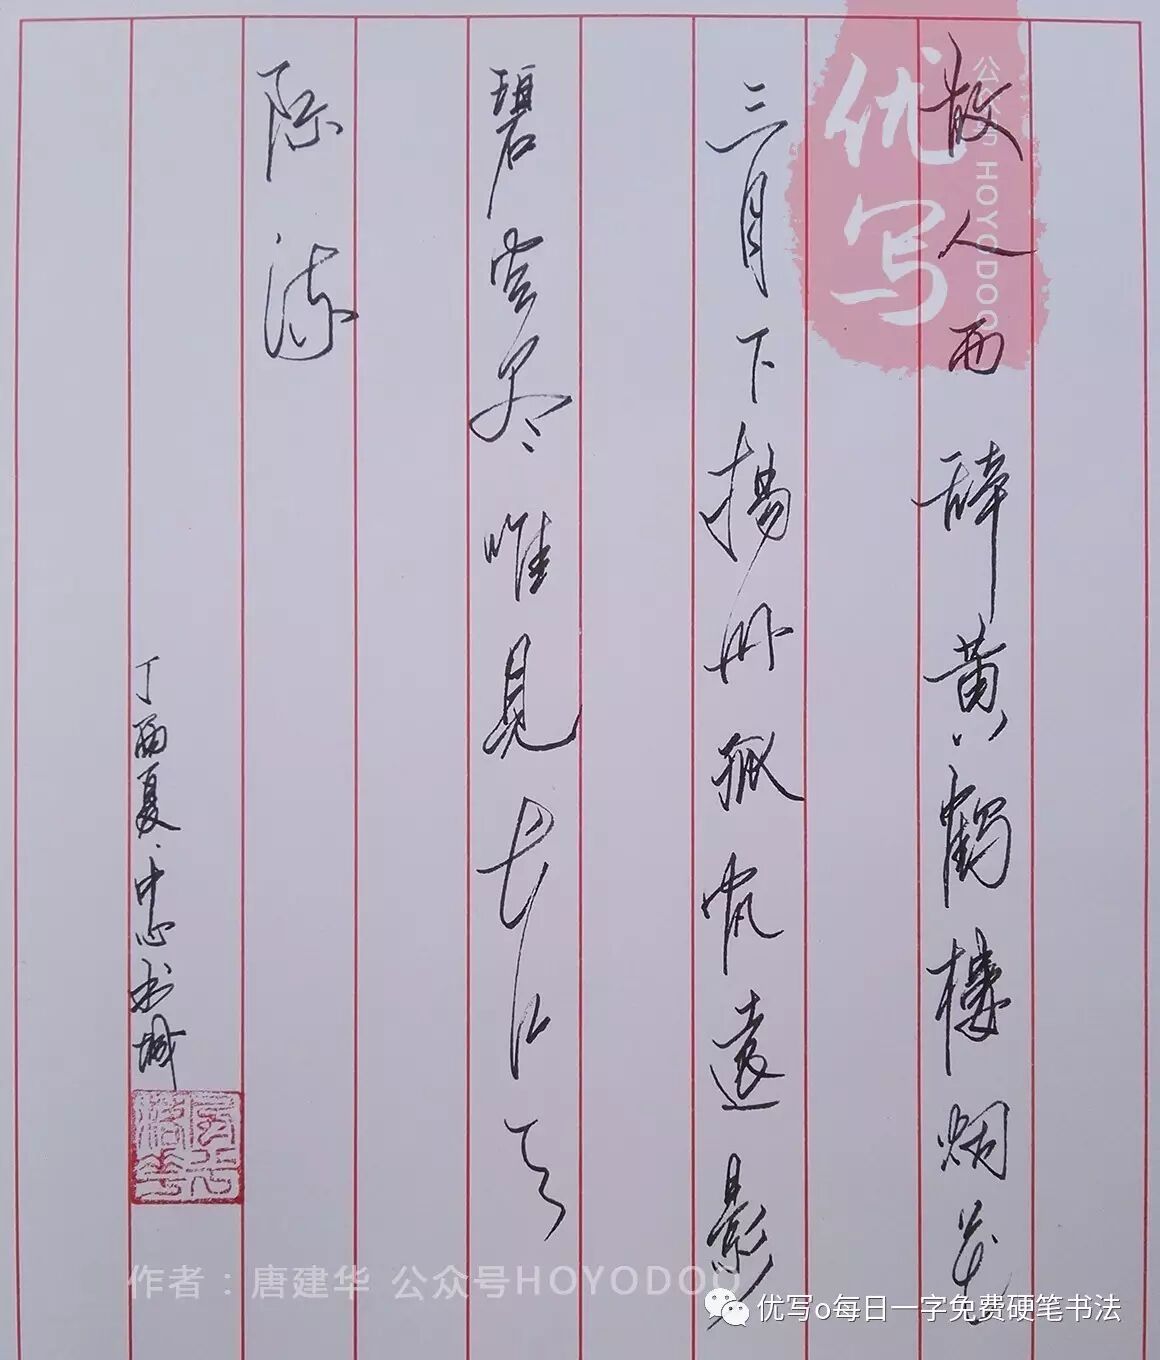 故人西辞黄鶴樓烟花
三月下揚州孤帆遠影
碧空尽唯見长江天
际流
丁酉夏·中心书城
优写
公众号HOYODOO
作者：唐建华 公众号HOYODOO
优写o每日一字免费硬笔书法